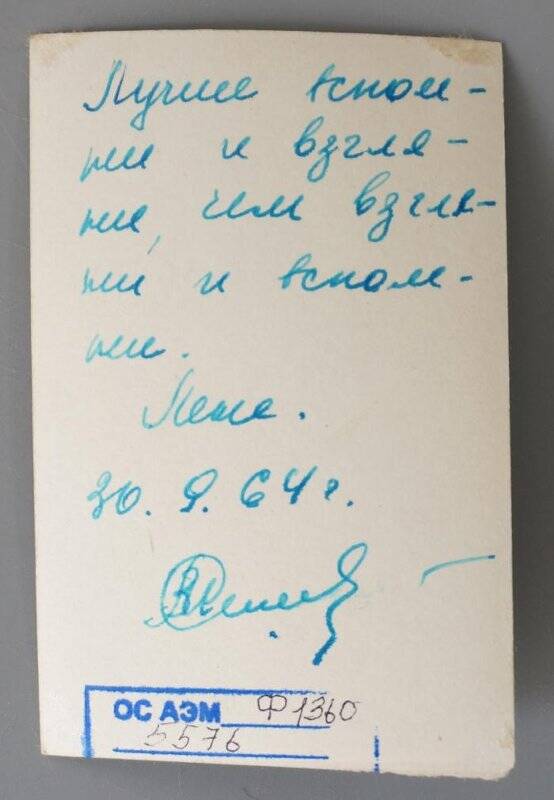 Лучше вспом-
ни и взгля-
ни, чем взгля-
ни и вспом-
ни.
30. 9. 64 г.
ОС АЭМ Ф 1360
5576